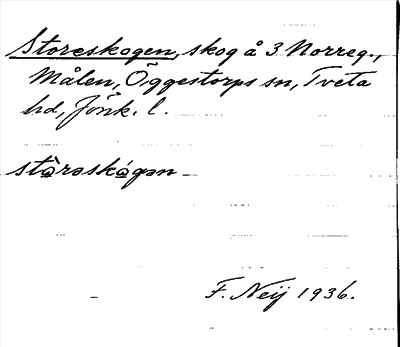 Storeskogen, skog å 3 Norreg.,
Målen, Öggestorps sn, Tveta
hd, Jönk. l.
stὰrəskógən
F. Neij 1936.